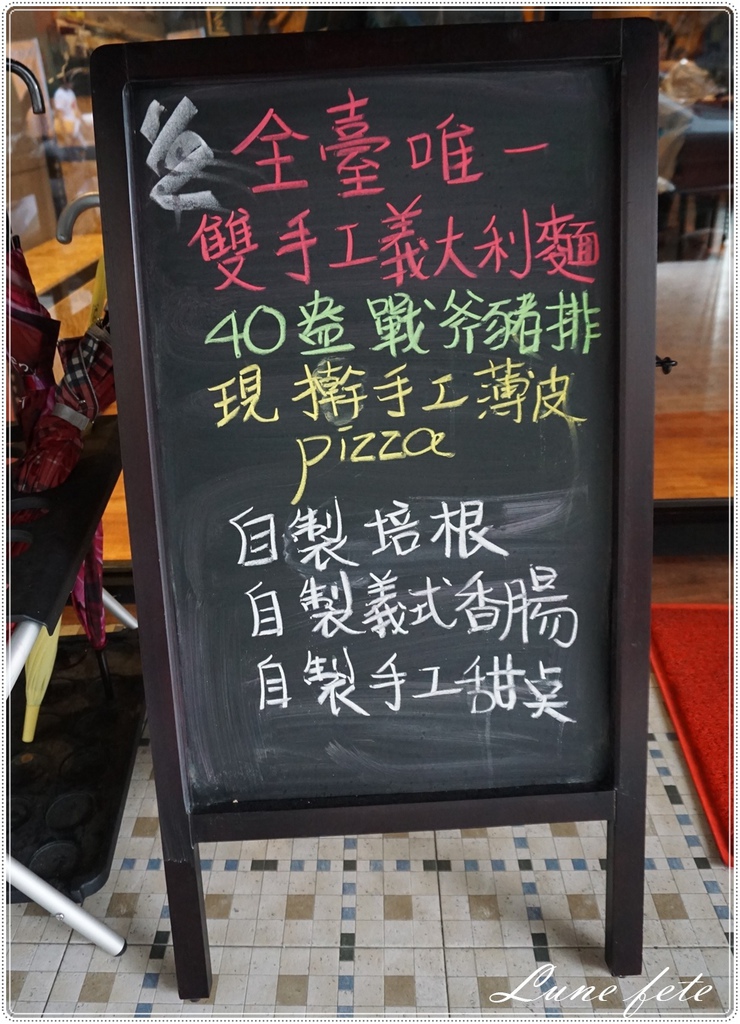 全臺唯一
雙手工義大利麵
40盎戰斧豬排
現擀手工薄皮
pizza
自製培根
自製義式香腸
自製手工甜点
Lune fete